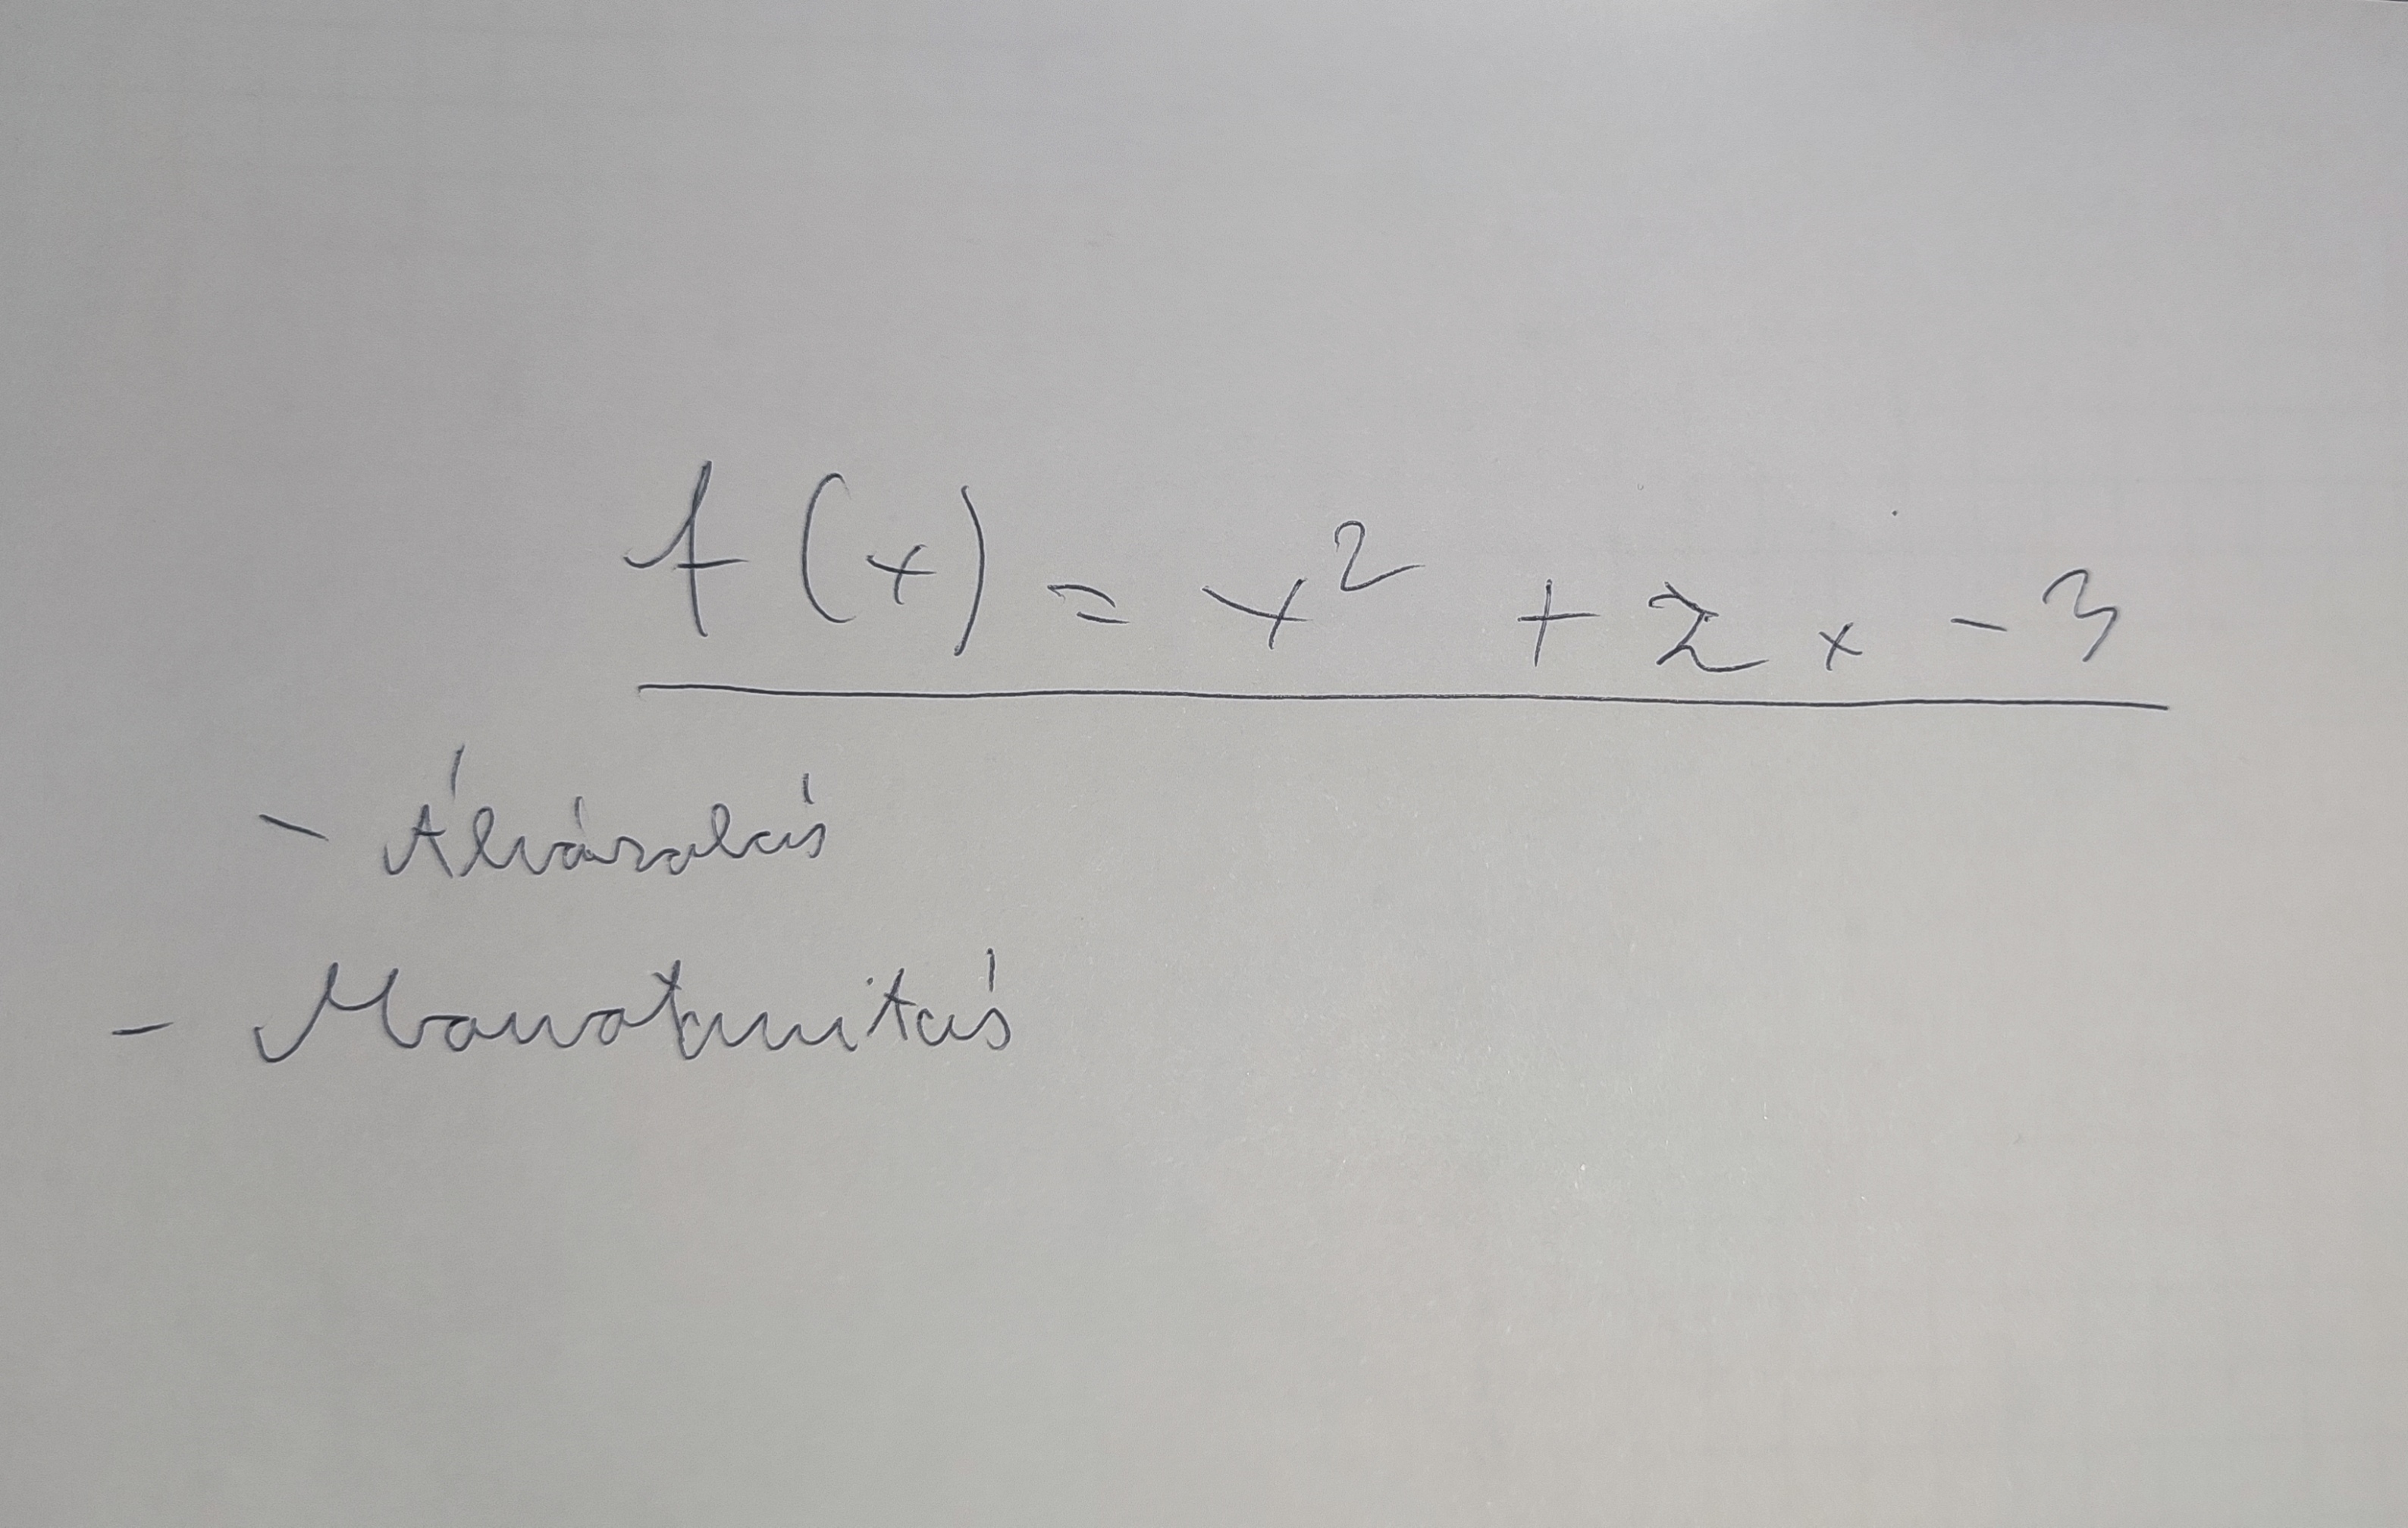 f(x) = x² + 2x - 3
- Ábrázolás
- Monotonitás